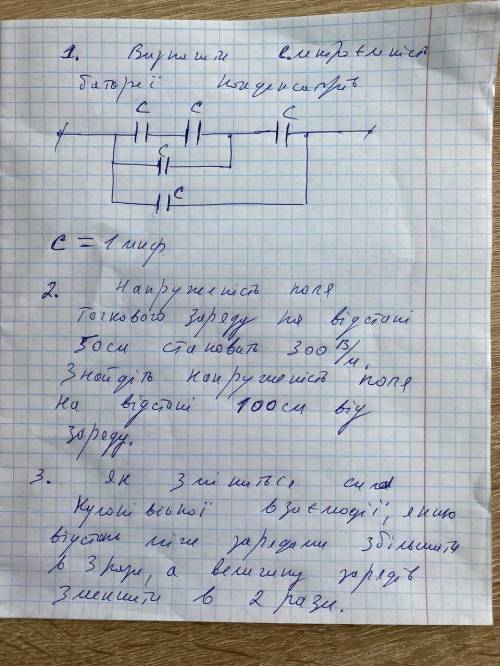 1. Визначити електроємність
батареї конденсаторів
C C C
C
C
C = 1 мкф
2. Напруженість поля
точкового заряду на відстані
50см становить 300 В/м.
Знайдіть напруженість поля
на відстані 100см від
заряду.
3. Як зміниться сила
Кулонівської взаємодії, якщо
відстань між зарядами збільшити
в 3 рази, а величину зарядів
зменшити в 2 рази.